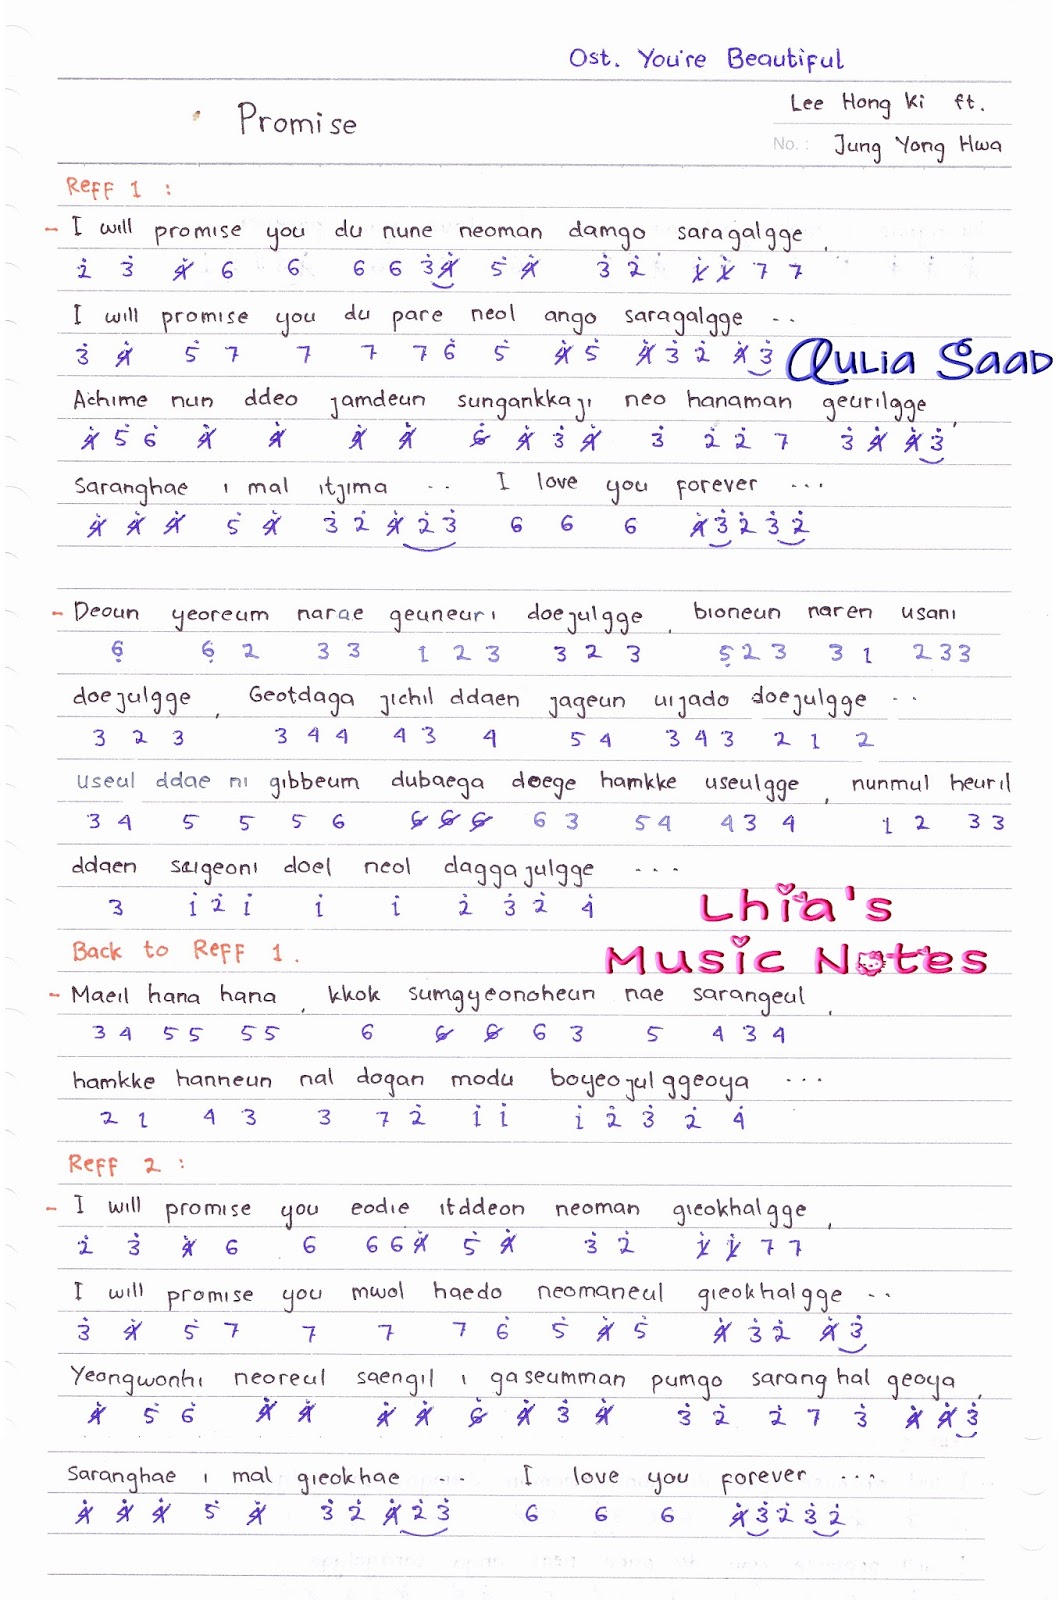 Ost. You're Beautiful
Promise
Lee Hong Ki ft.
No. : Jung Yong Hwa
Reff 1 :
- I will promise you du nune neoman damgo saragalgge ,
2̇ 3̇ 4̸̇ 6 6 6 6 3̇ 4̸̇ 5̇ 4̸̇ 3̇ 2̇ 1̸̇ 1̸̇ 7 7
I will promise you du pare neol ango saragalgge ..
3̇ 4̸̇ 5̇ 7 7 7 7 6̇ 5̇ 4̸̇ 5̇ 4̸̇ 3̇ 2̇ 4̸̇ 3̇
Aulia Saad
Achime nun ddeo jamdeun sungankkaji neo hanaman geurilgge ,
4̸̇ 5̇ 6̇ 4̸̇ 4̸̇ 4̸̇ 4̸̇ 6̸̇ 4̸̇ 3̇ 4̸̇ 3̇ 2̇ 2̇ 7 3̇ 4̸̇ 4̸̇ 3̇
Saranghae i mal itjima .. I love you forever ...
4̸̇ 4̸̇ 4̸̇ 5̇ 4̸̇ 3̇ 2̇ 4̸̇ 2̇ 3̇ 6 6 6 4̸̇ 3̇ 2̇ 3̇ 2̇
- Deoun yeoreum narae geuneuri doejulgge , bioneun naren usani
6̣ 6̣ 2 3 3 1 2 3 3 2 3 5̣ 2 3 3 1 2 3 3
doejulgge , Geotdaga jichil ddaen jageun uijado doejulgge ..
3 2 3 3 4 4 4 3 4 5 4 3 4 3 2 1 2
useul ddae ni gibbeum dubaega doege hamkke useulgge , nunmul heuril
3 4 5 5 5 6 6̸ 6̸ 6̸ 6 3 5 4 4 3 4 1 2 3 3
ddaen saigeoni doel neol daggajulgge ...
3 1̇ 2̇ 1̇ 1̇ 1̇ 2̇ 3̇ 2̇ 4̇
Lhia's
Music Notes
Back to Reff 1 .
- Maeil hana hana , kkok sumgyeonoheun nae sarangeul ,
3 4 5 5 5 5 6 6̸ 6̸ 6 3 5 4 3 4
hamkke hanneun nal dogan modu boyeojulggeoya ...
2 1 4 3 3 7 2̇ 1̇ 1̇ 1̇ 2̇ 3̇ 2̇ 4̇
Reff 2 :
- I will promise you eodie itddeon neoman gieokhalgge ,
2̇ 3̇ 4̸̇ 6 6 6 6 4̸̇ 5̇ 4̸̇ 3̇ 2̇ 1̸̇ 1̸̇ 7 7
I will promise you mwol haedo neomaneul gieokhalgge ..
3̇ 4̸̇ 5̇ 7 7 7 7 6̇ 5̇ 4̸̇ 5̇ 4̸̇ 3̇ 2̇ 4̸̇ 3̇
Yeongwonhi neoreul saengil i gaseumman pumgo saranghal geoya ,
4̸̇ 5̇ 6̇ 4̸̇ 4̸̇ 4̸̇ 4̸̇ 6̸̇ 4̸̇ 3̇ 4̸̇ 3̇ 2̇ 2̇ 7 3̇ 4̸̇ 4̸̇ 3̇
Saranghae i mal gieokhae ... I love you forever ...
4̸̇ 4̸̇ 4̸̇ 5̇ 4̸̇ 3̇ 2̇ 4̸̇ 2̇ 3̇ 6 6 6 4̸̇ 3̇ 2̇ 3̇ 2̇